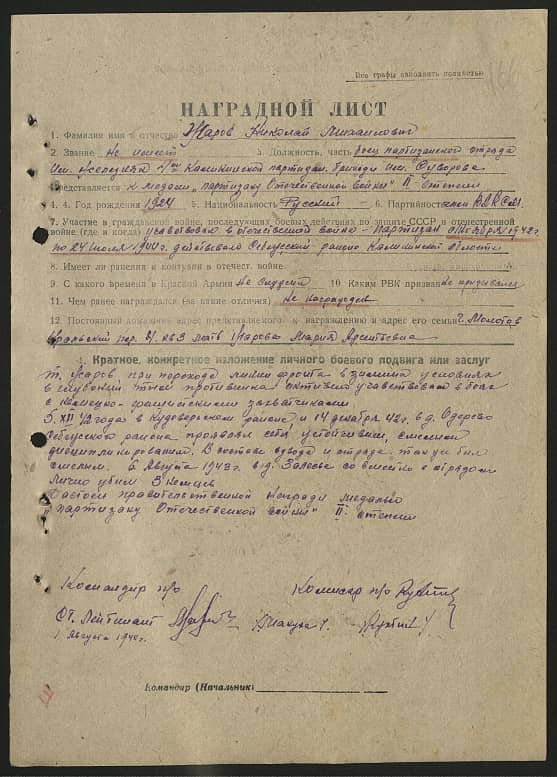 Все графы заполнять полностью
НАГРАДНОЙ ЛИСТ
1. Фамилия имя и отчество Жаров Николай Михайлович
2. Звание Не имеет 3. Должность, часть боец партизанского отряда
им. 1ой Калининской партизан. бригады им. Суворова
Представляется к медали „партизану Отечественной Войны" II степени
4. 4. Год рождения 1924 5. Национальность Русский 6. Партийность член ВЛКСМ.
7. Участие в гражданской войне, последующих боевых действиях по защите СССР и отечественной
войне (где и когда) участвовал в отечественной войне - Партизан с 1942г.
по 24 июля 1944г. действовал Себежский район Калининской области
8. Имеет ли ранения и контузии в отечест. войне
9. С какого времени в Красной Армии Не служил 10 Каким РВК призван не призывался
11. Чем ранее награждался (за какие отличия) Не награждался
12. Постоянный домашний адрес представляемого к награждению и адрес его семьи г. Молотов
Уральский пер. Жарова Мария
1. Краткое, конкретное изложение личного боевого подвига или заслуг
т. Жаров, при переходе линии фронта в зимних условиях
в глубокий тыл противника активно участвовал в боях
с немецко-фашистскими захватчиками.
5. XII 42 года в районе и 14 декабря 42 г. в д.
Себежского района проявлял себя устойчивым, смелым
дисциплинированным. В составе взвода и отряда также был
смелым. 6 Августа 1943 г. в д. Залесье совместно с отрядом
лично убил 3 немцев
Достоин правительственной награды медалью
„партизану Отечественной войны" II степени
Командир п/о Комиссар п/о
Ст. Лейтенант
1. Августа 1944г.
Командир (Начальник)